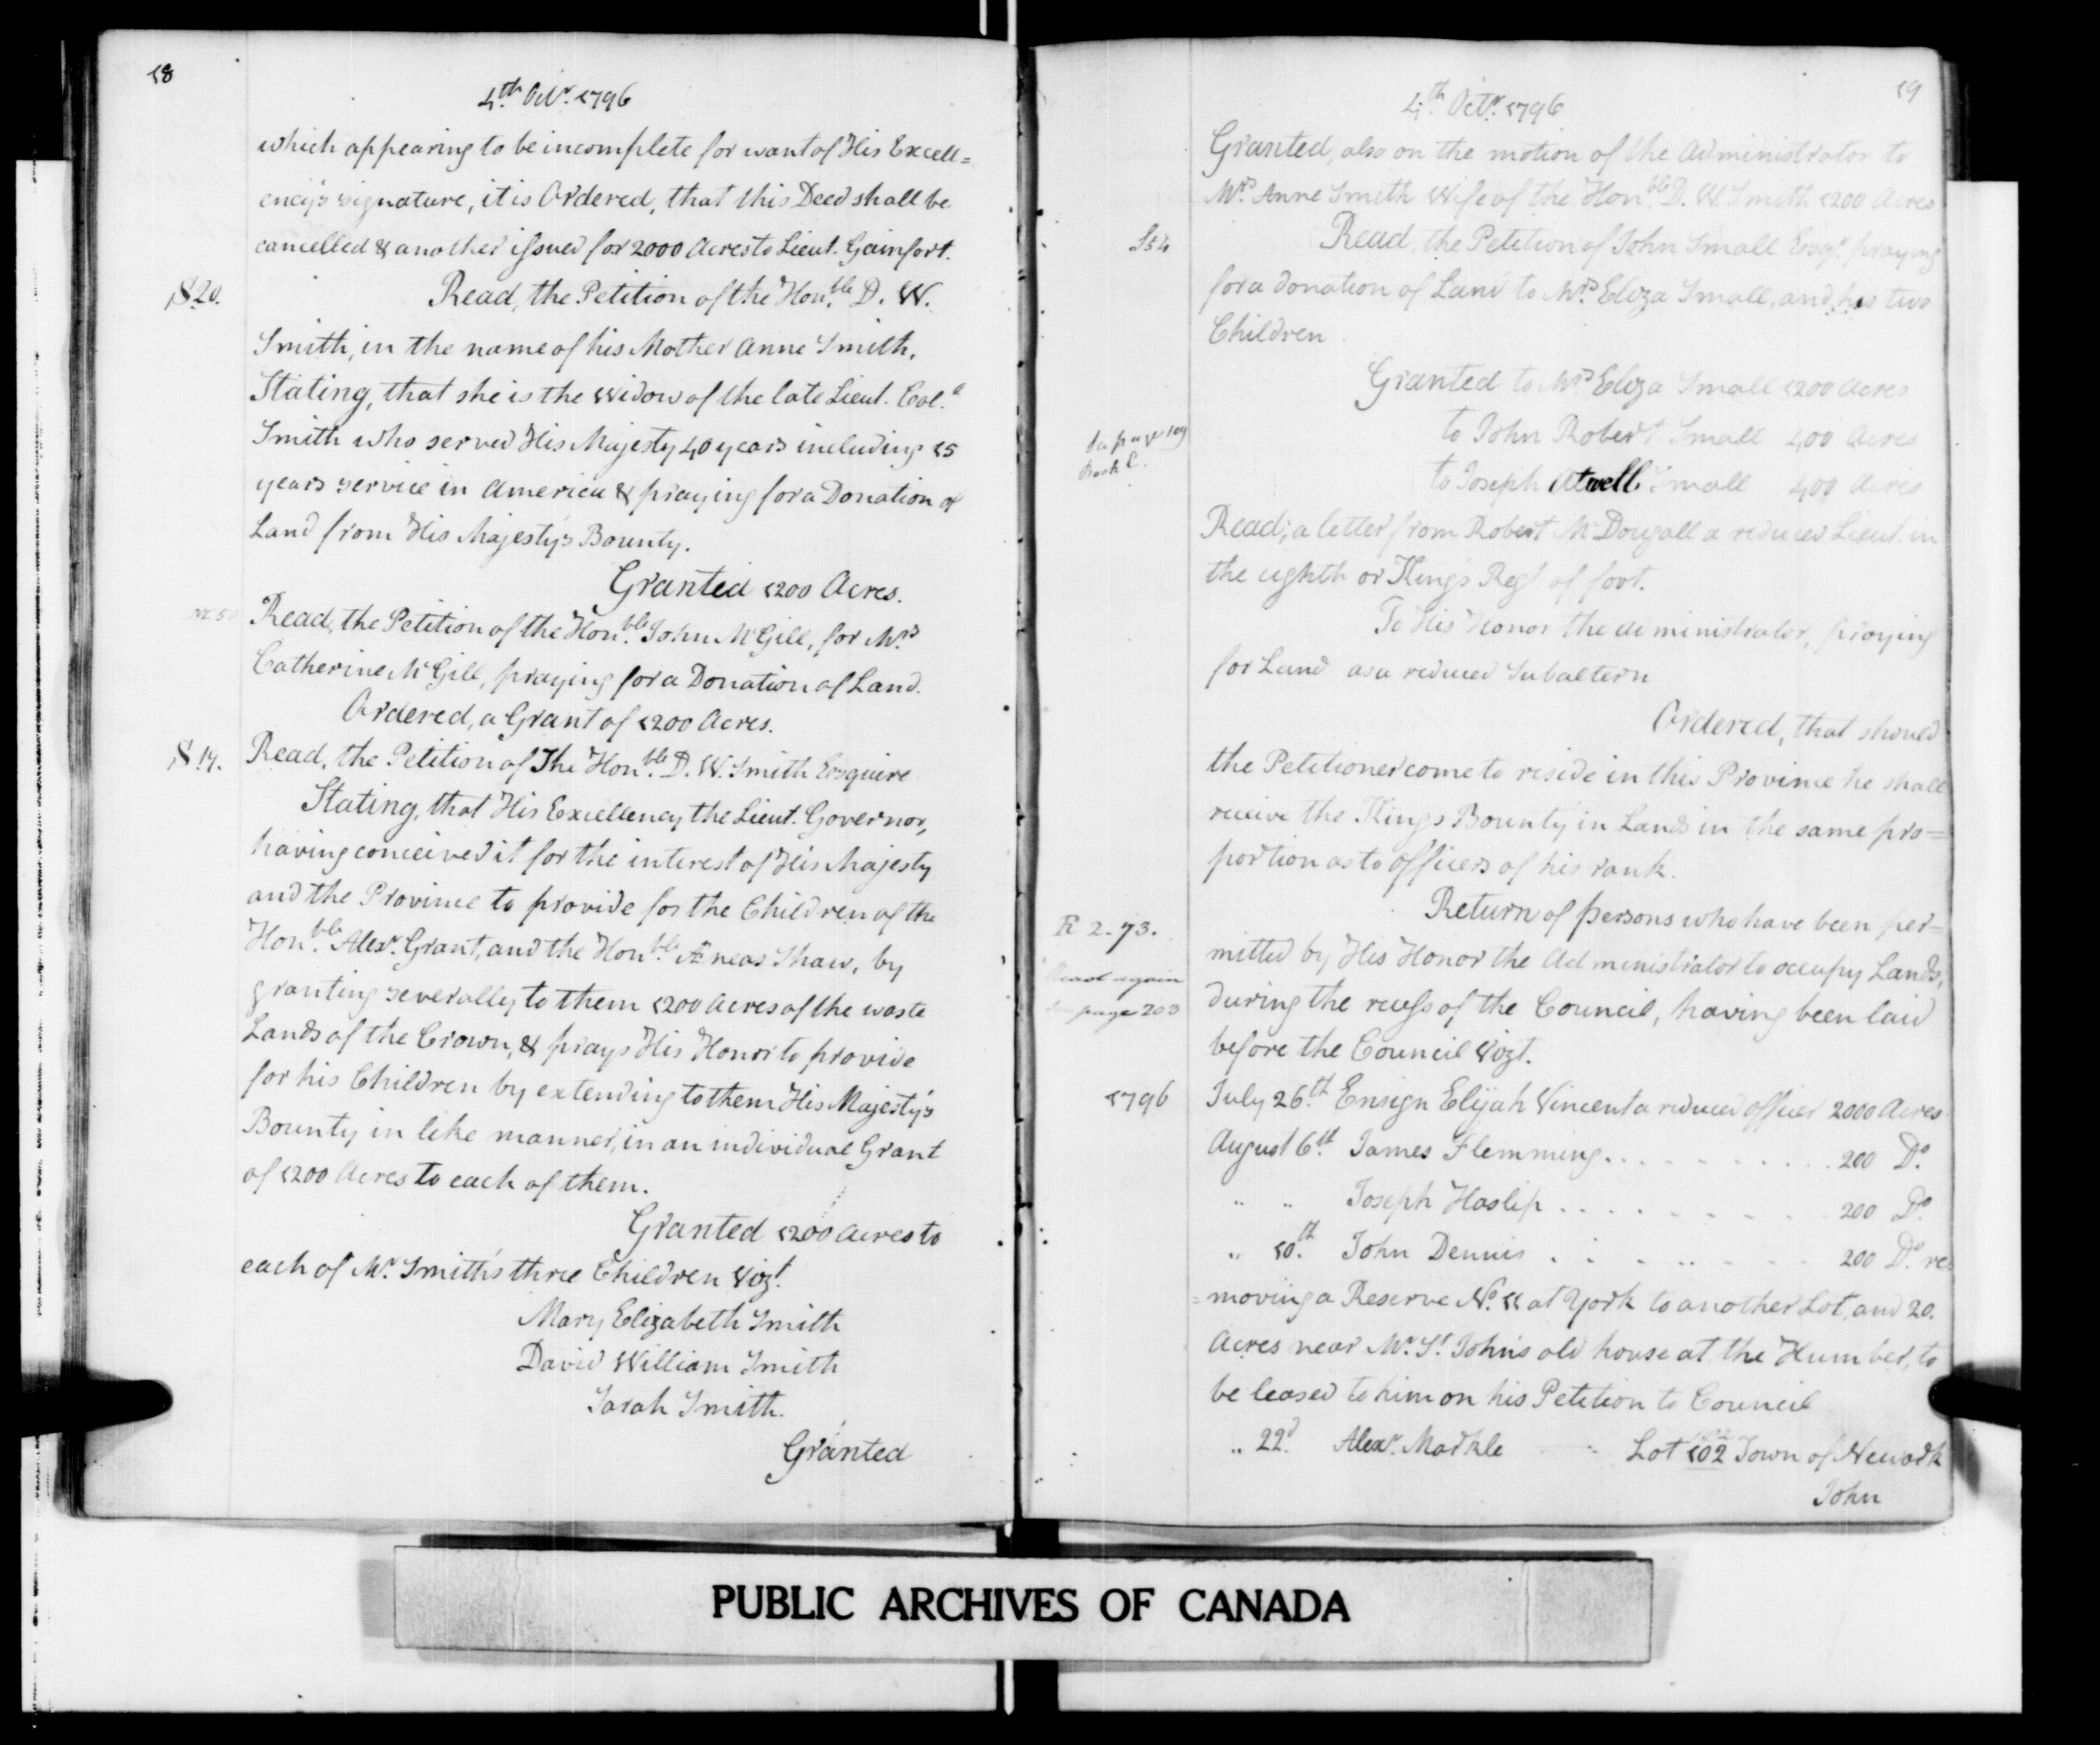 18
4th Octr. 1796
which appearing to be incomplete for want of His Excell=
ency's signature, it is Ordered, that this Deed shall be
cancelled & another issued for 2000 Acres to Lieut. Gainfort.
S 20.
Read, the Petition of the Honble. D. W.
Smith, in the name of his Mother Anne Smith,
Stating, that she is the Widow of the late Lieut. Col.
Smith who served His Majesty 40 years including 15
years service in America & praying for a Donation of
Land from His Majesty's Bounty.
Granted 1200 Acres.
Read, the Petition of the Honble. John McGill, for Mrs
Catherine McGill, praying for a Donation of Land.
Ordered, a Grant of 1200 Acres.
S 19.
Read, the Petition of The Honble. D. W. Smith Esquire
Stating, that His Excellency the Lieut. Governor,
having conceived it for the interest of His Majesty
and the Province to provide for the Children of the
Honble. Alexr. Grant, and the Honble. Æneas Shaw, by
granting severally to them 1200 Acres of the waste
Lands of the Crown, & prays His Honor to provide
for his Children by extending to them His Majesty's
Bounty in like manner, in an individual Grant
of 1200 Acres to each of them.
Granted 1200 Acres to
each of Mr. Smith's three Children Vizt.
Mary Elizabeth Smith
David William Smith
Sarah Smith.
Granted
19
4th. Octr. 1796
Granted, also on the motion of the Administrator to
Mrs. Anne Smith Wife of the Honble. D. W. Smith 1200 Acres
S54
Read, the Petition of John Small Esqr. praying
for a donation of Land to Mrs. Eliza Small, and his two
Children
Granted to Mrs Eliza Small 1200 Acres
to John Robert Small 400 Acres
to Joseph Atwell Small 400 Acres
page 109
Book C.
Read, a letter from Robert McDougall a reduced Lieut. in
the eighth or King's Regt. of foot.
To His Honor the Administrator, praying
for Land as a reduced Subaltern
Ordered, that should
the Petitioner come to reside in this Province he shall
receive the King's Bounty in Lands in the same pro=
portion as to officers of his rank.
R 2. 73.
Read again
page 203
Return of persons who have been per=
mitted by His Honor the Administrator to occupy Lands,
during the recess of the Council, having been laid
before the Council Vizt.
1796
July 26th. Ensign Elijah Vincent a reduced officer 2000 Acres
August 6th. James Flemming . . . . . . . . . . 200 Do.
" " Joseph Haslip . . . . . . . . . . 200 Do.
" 10th. John Dennis . . . . . . . . . 200 Do. re=
=moving a Reserve No. 11 at York to another Lot, and 20.
Acres near Mr. St. John's old house at the Humber, to
be leased to him on his Petition to Council
" 22d. Alexr. Markle Lot 102 Town of Newark
John
PUBLIC ARCHIVES OF CANADA